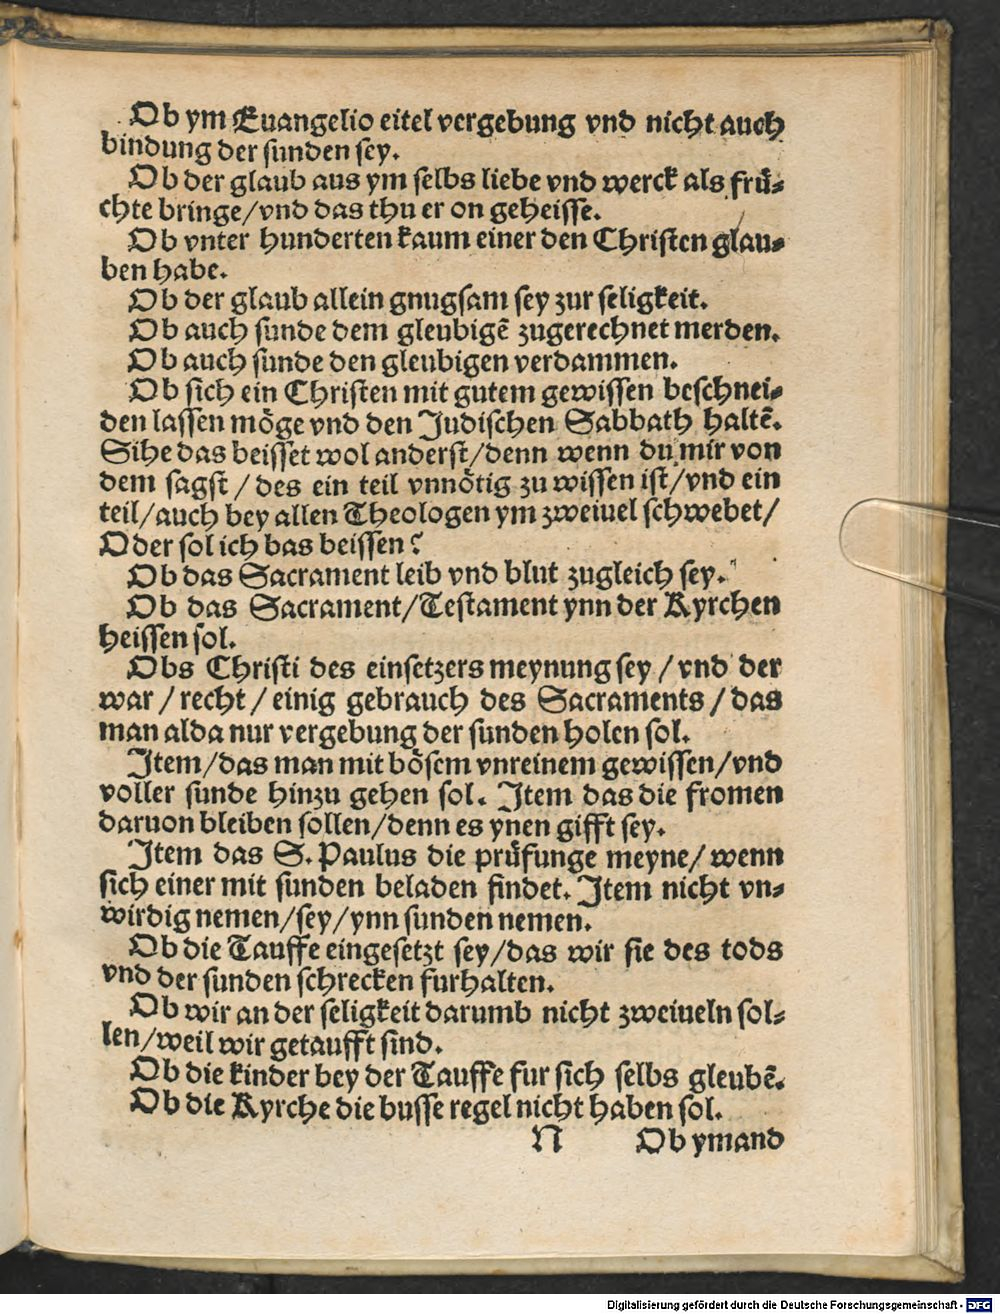 Ob ym Euangelio eitel vergebung vnd nicht auch
bindung der sunden sey.
Ob der glaub aus ym selbs liebe vnd werck als frü⸗
chte bringe/vnd das thu er on geheisse.
Ob vnter hunderten kaum einer den Christen glau⸗
ben habe.
Ob der glaub allein gnugsam sey zur seligkeit.
Ob auch sunde dem gleubigē zugerechnet werden.
Ob auch sunde den gleubigen verdammen.
Ob sich ein Christen mit gutem gewissen beschnei⸗
den lassen möge vnd den Judischen Sabbath haltē.
Sihe das beisset wol anderst/denn wenn du mir von
dem sagst / des ein teil vnnötig zu wissen ist/vnd ein
teil/auch bey allen Theologen ym zweiuel schwebet/
Oder sol ich bas beissen?
Ob das Sacrament leib vnd blut zugleich sey.
Ob das Sacrament/Testament ynn der Kyrchen
heissen sol.
Obs Christi des einsetzers meynung sey / vnd der
war / recht / einig gebrauch des Sacraments / das
man alda nur vergebung der sunden holen sol.
Item/das man mit bösem vnreinem gewissen/vnd
voller sunde hinzu gehen sol. Item das die fromen
daruon bleiben sollen/denn es ynen gifft sey.
Item das S. Paulus die prüfunge meyne/ wenn
sich einer mit sunden beladen findet. Item nicht vn⸗
wirdig nemen/sey/ynn sunden nemen.
Ob die Tauffe eingesetzt sey/das wir sie des tods
vnd der sunden schrecken furhalten.
Ob wir an der seligkeit darumb nicht zweiueln sol⸗
len/weil wir getaufft sind.
Ob die kinder bey der Tauffe fur sich selbs gleubē.
Ob die Kyrche die busse regel nicht haben sol.
N Ob ymand
Digitalisierung gefördert durch die Deutsche Forschungsgemeinschaft - DFG